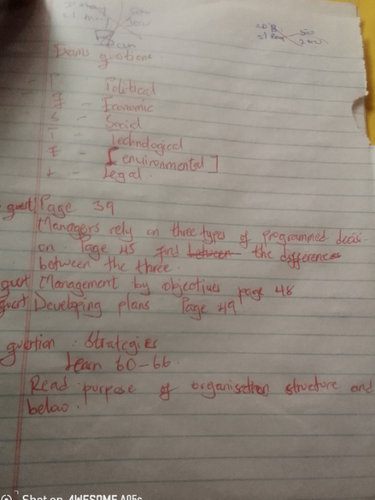 Exams questions
P - Political
E - Economic
S - Social
T - Technological
E - [environmental]
L - Legal.
quest Page 39
Managers rely on three types of Programmed decisi
on Page 45 find between the differences
between the three.
quest Management by objectives page 48
quest Developing plans Page 49
question : Strategies
learn 60-66.
Read purpose of organisation structure and
below.
Shot on AWESOME A05s